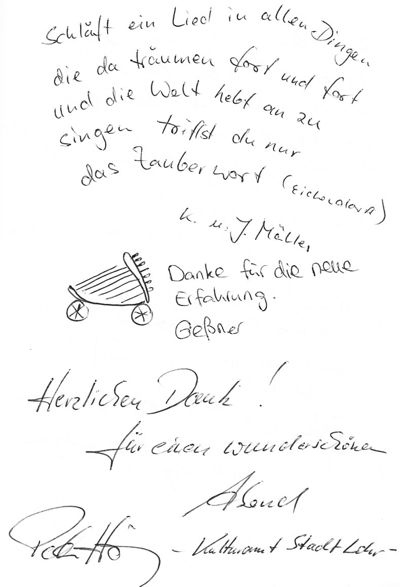 Schläft ein Lied in allen Dingen
die da träumen fort und fort
und die Welt hebt an zu
singen triffst du nur
das Zauberwort (Eichendorff)
K. u. J. Müller
Danke für die neue
Erfahrung.
Geßner
Herzlichen Dank!
für einen wunderschönen
Abend
Peter
- Kulturamt Stadt Lohr -